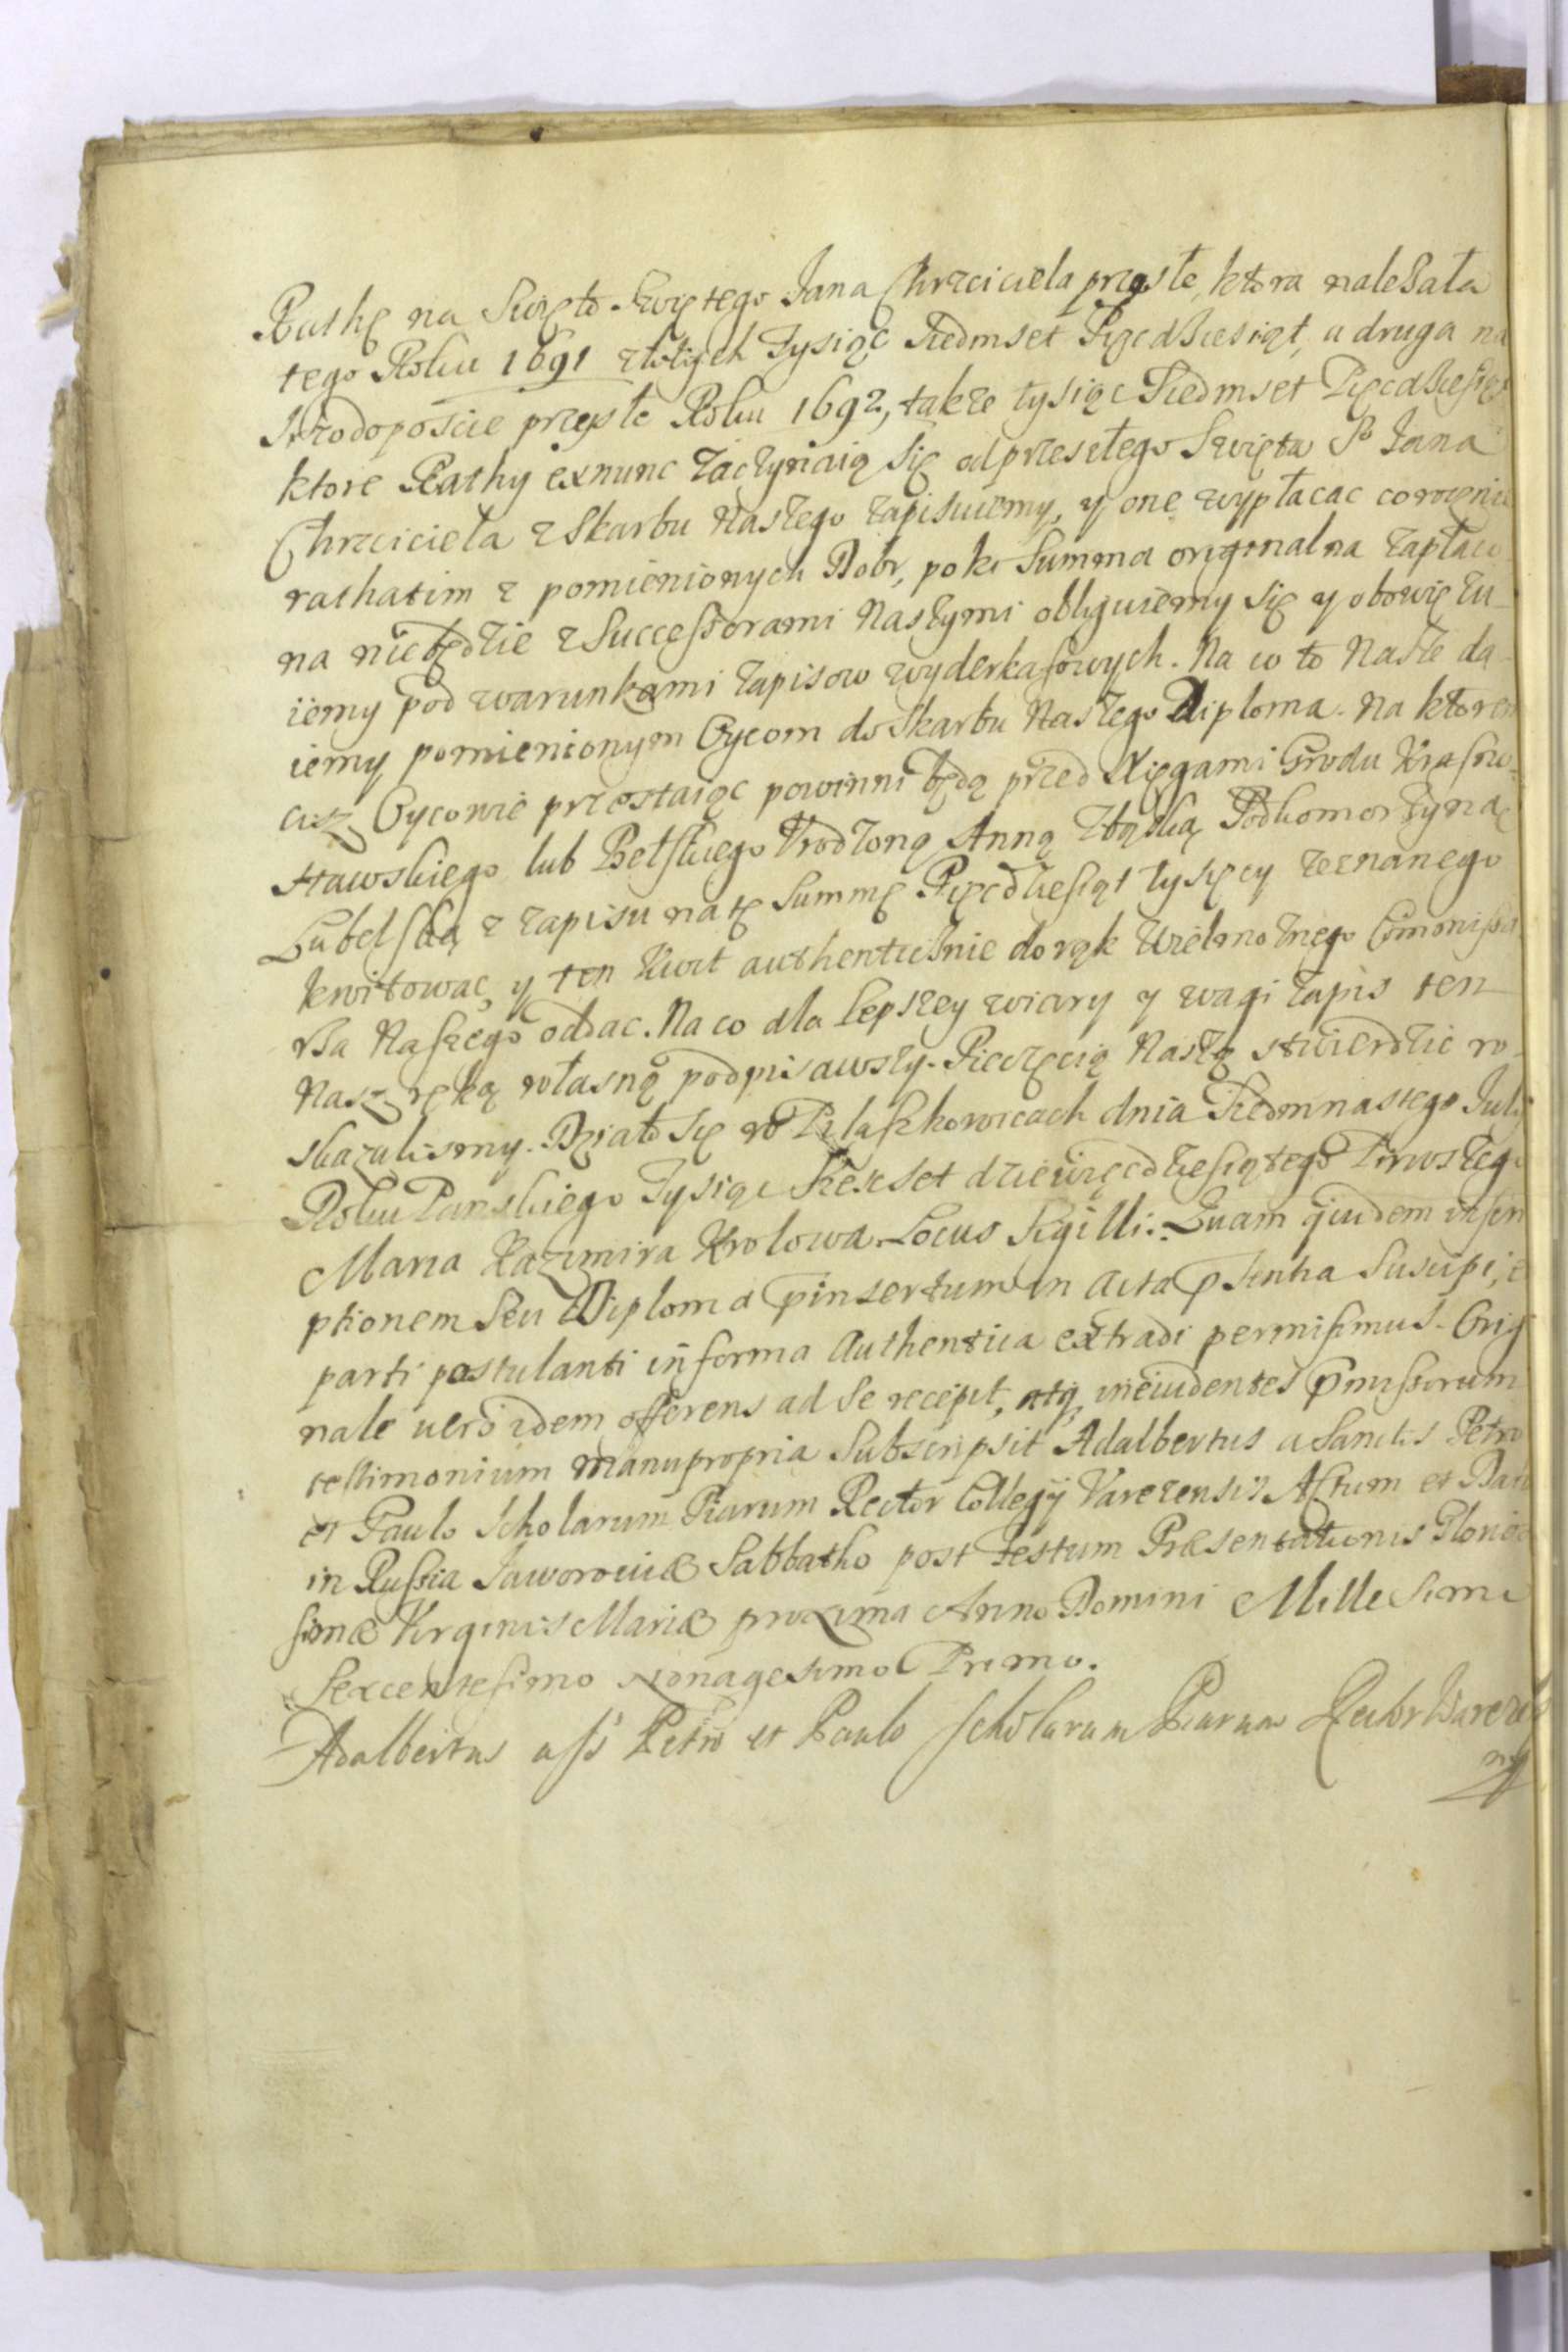 Rathę na Swięto Swiętego Jana Chrzciciela przeszłe, ktora nalezała
tego Roku 1691 złotych Tysiąc Siedmset Pięcdziesiąt, a druga na
Srzodoposcie przyszłe Roku 1692, takze tysiąc Siedmset Pięcdziesiąt
ktore Rathy exnunc zaczynaią się od przeszłego Swięta So Jana
Chrzciciela z Skarbu Naszego zapisuiemy, y one wypłacac corocznie
rathatim z pomienionych Dobr, poki Summa orginalna zapłaco
na niebędzie z Successorami Naszymi obliguiemy się y obowięzu-
iemy pod warunkami zapisow wyderkafowych. Na co to Nasze da-
iemy pomienionym Oycom do Skarbu Naszego Diploma. Na ktorem
ciz Oycowie przestaiąc powinni będą przed Xięgami Grodu Krasno-
stawskiego lub Bełskiego Vrodzoną Annę Zbąską Podkomorzyną
Lubelską z zapisu na tę Summę Pięcdziesiąt tysięcy zeznanego
kwitowac, y ten Kwit authenticznie do rąk Wielmoznego Commissa
rza Naszego oddac. Na co dla lepszey wiary y wagi zapis ten
Nasz ręką własną podpisawszy. Pieczęcią Naszą stwierdzic ro-
skazalismy. Działo się w Pilaszkowicach dnia Siedmnastego July
Roku Panskiego Tysiąc Szescset dziewięcdziesiątego Pirwszego
Maria Kazimira Krolowa. Locus Sigilli: Quam quidem inscri
ptionem Seu Diploma pinsertum in Acta psentia Suscipi, e
parti postulanti in forma Authentica extradi permisimus. Origi
nale uero idem offerens ad Se recepit, atq, in euidentes pmissorum
testimonium manu propria Subscripsit Adalbertus a Sanctis Petro
et Paulo Scholarum Piarum Rector Collegij Varezensis Actum et Datu
in Russia Jaworoviæ Sabbatho post Festum Præsentationis Glorio
simæ Virginis Mariæ proxima Anno Domini Millesimo
Sexcentesimo Nonagesimo Primo.
Adalbertus a SS Petro et Paulo Scholarum Piarum Rector Vareze
mp